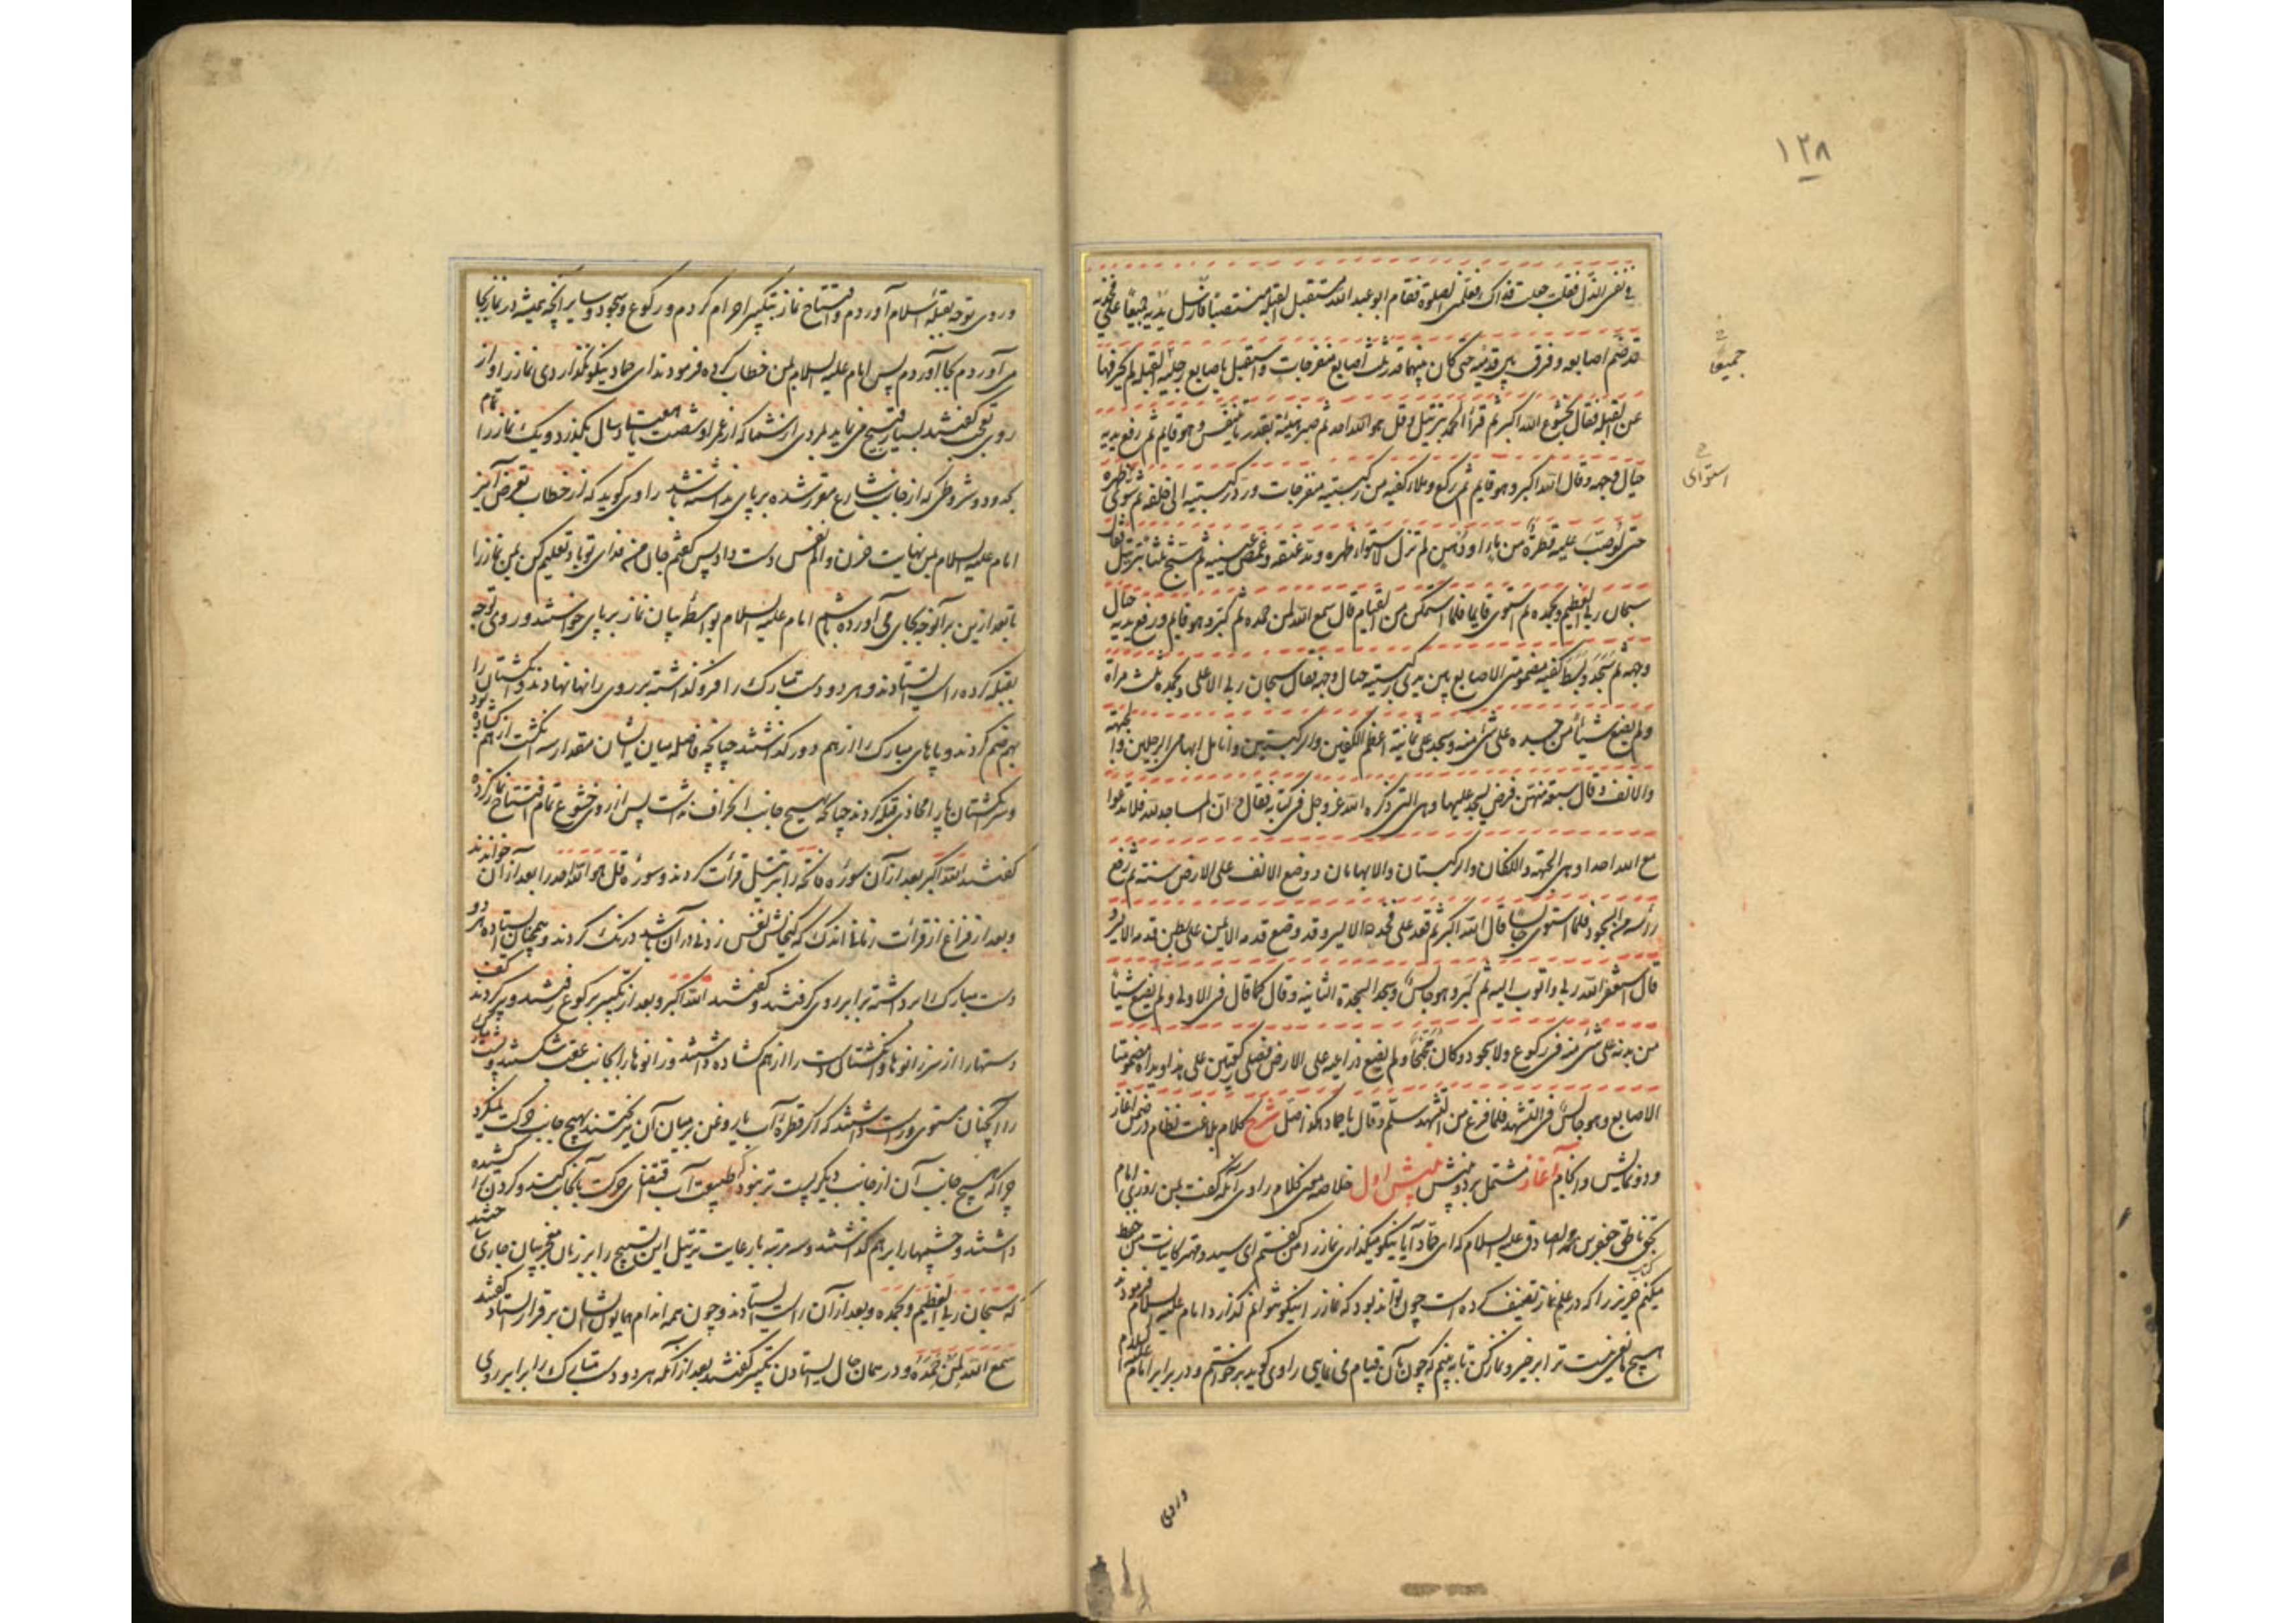 ١٢٨
فی نفسی الذل فقلت جعلت فداک فعلمنی الصلوة فقام ابو عبد الله مستقبل القبلة منتصبا فارسل یدیه جمیعا علی فخذیه
قد ضم اصابعه و فرق بین قدمیه حتی کان بینهما قدر ثلث اصابع منفرجات و استقبل باصابع رجلیه القبلة لم یحرفها
عن القبلة فقال بخشوع الله اکبر ثم قرأ الحمد بترتیل و قل هو الله احد ثم صبر هنیئة بقدر ما یتنفس و هو قایم ثم رفع یدیه
حیال وجهه و قال الله اکبر و هو قایم ثم رکع و ملاء کفیه من رکبتیه منفرجات و رد رکبتیه الی خلفه ثم سوی ظهره
حتی لو صب علیه قطرة من ماء او دهن لم تزل لاستواء ظهره و مد عنقه و غمض عینیه ثم سبح ثلثا بترتیل فقال
سبحان ربی العظیم و بحمده ثم استوی قایما فلما استمکن من القیام قال سمع الله لمن حمده ثم کبر و هو قایم و رفع یدیه حیال
وجهه ثم سجد و بسط کفیه مضمومتی الاصابع بین یدی رکبتیه حیال وجهه فقال سبحان ربی الاعلی و بحمده ثلث مراة
و لم یضع شیئا من جسده علی شئ منه و سجد علی ثمانیة اعظم الکفین و الرکبتین و انامل ابهامی الرجلین و الجبهة
و الانف و قال سبعة منهن فرض یسجد علیها و هی التی ذکره الله عز و جل فی کتابه فقال و ان المساجد لله فلا تدعوا
مع الله احدا و هی الجبهة و الکفان و الرکبتان و الابهامان و وضع الانف علی الارض سنة ثم رفع
رأسه من السجود فلما استوی جالسا قال الله اکبر ثم قعد علی فخذه الایسر و قد وضع قدمه الایمن علی بطن قدمه الایسر و
قال استغفر الله ربی و اتوب الیه ثم کبر و هو جالس و سجد السجدة الثانیة و قال کما قال فی الاولی و لم یضع شیئا
من بدنه علی شئ منه فی رکوع و لا سجود و کان مجنحا و لم یضع ذراعیه علی الارض فصلی رکعتین علی هذا و یداه مضمومتا
الاصابع و هو جالس فی التشهد فلما فرغ من التشهد سلم و قال یا حماد هکذا صل شرح کلام بلاغت نظام در ضمن آغاز
و دو نمایش و انجام آغاز مشتمل بر دو منیش منیش اول خلاصه معنی کلام راوی آنکه گفت بمن روزی امام
بحق ناطق جعفر بن محمد الصادق علیه السلام که ای حماد آیا نیکو میگذاری نماز را من گفتم ای سید و مهتر کاینات من حفظ
میکنم کتاب حریز را که در علم نماز تصنیف کرده است چون تواند بود که نماز را نیکو نتوانم گذارد امام علیه السلام فرمود
هیچ مانعی نیست ترا برخیز و نماز کن تا به بینم که چون بآن قیام می نمایی راوی گوید برخواستم و در برابر امام علیه السلام
جمیعا
استوای
و روی
و روی توجه بقبله اسلام آوردم و افتتاح نماز بتکبیر احرام کردم و رکوع و سجود و سایر آنچه همیشه در نماز بجا
می آوردم بجا آوردم پس امام علیه السلام بمن خطاب کرده فرمودند ای حماد نیکو نگذاردی نماز را و از
روی تعجب گفتند بسیار قبیح می نماید بمردی از شما که از عمر او شصت یا هفتاد سال بگذرد و یک نماز را تمام
بحدود و شروطی که از جانب شارع مقرر شده بر پای نداشته باشد راوی گوید که از خطاب تعرض آمیز
امام علیه السلام بمن نهایت حزن و الم نفس دست داد پس گفتم جان من فدای تو باد تعلیم کن بمن نماز را
تا بعد ازین بر آنوجه بجای می آورده باشم امام علیه السلام بواسطه بیان نماز بر پای خواستند و روی توجه
بقبله کرده راست ایستادند و هر دو دست مبارک را فرو گذاشته بر روی رانها نهادند و انگشتان را
بهم ضم کردند و پاهای مبارک را از هم دور گذاشتند چنانچه فاصله میان ایشان مقدار سه انگشت از هم گشاده بود
و سر انگشتان پا را محاذی قبله کردند چنانکه هیچ جانب انحراف نداشت پس از روی خشوع تمام افتتاح نماز کرده
گفتند الله اکبر بعد از آن سوره فاتحه را بترتیل قرائت کردند و سوره قل هو الله احد را بعد از آن خواندند
و بعد از فراغ از قرائت زمانی اندک که گنجایش نفس زدنی در آن باشد درنگ کردند و همچنان ایستاده هر دو
دست مبارک را برداشته برابر روی گرفتند و گفتند الله اکبر و بعد از تکبیر برکوع رفتند و پر کردند کف
دستها را از سر زانوها و انگشتان دست را از هم گشاده داشتند و زانوها را بجانب عقب شکستند و پشت مبارک
را آنچنان مستوی و راست داشتند که اگر قطره آب یا روغن بر میان آن میریختند بهیچ جانب حرکت نمیکرد
چرا که هیچ جانب آن از جانب دیگر پست تر نبود که طبیعت آب اقتضای حرکت بآنجانب کند و گردن را کشیده
داشتند و چشمها را بر هم گذاشتند و سه مرتبه با رعایت ترتیل این تسبیح را بر زبان معجز بیان جاری ساختند
که سبحان ربی العظیم و بحمده و بعد از آن راست ایستادند و چون همه اندام همایون ایشان بر قرار ایستاد گفتند
سمع الله لمن حمده و در همان حال ایستادن تکبیر گفتند بعد از آنکه هر دو دست مبارک را برابر روی